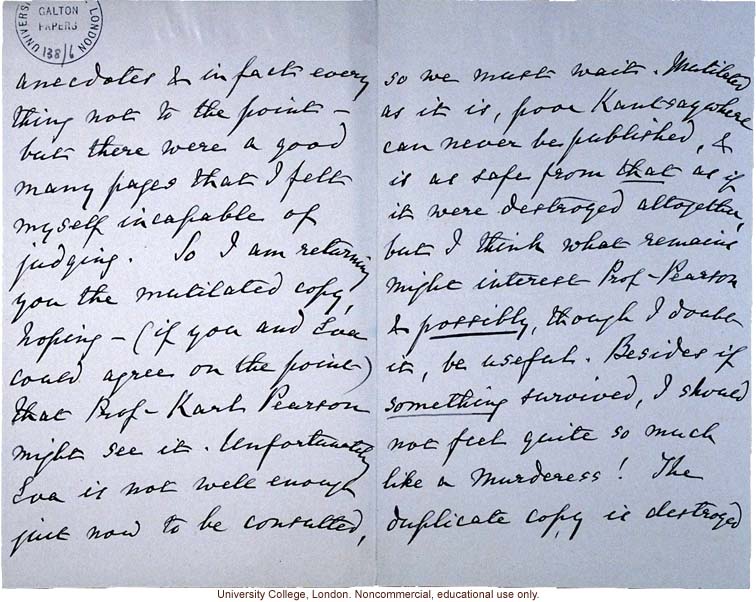 UNIVERSITY LONDON
GALTON
PAPERS
138/6
anecdotes & in fact every
thing not to the point –
but there were a good
many pages that I felt
myself incapable of
judging. So I am returning
you the mutilated copy,
hoping – (if you and Eva
could agree on the point)
that Prof– Karl Pearson
might see it. Unfortunately
Eva is not well enough
just now to be consulted,
so we must wait. Mutilated
as it is, poor Kantsaywhere
can never be published, &
is as safe from that as if
it were destroyed altogether,
but I think what remains
might interest Prof– Pearson
& possibly, though I doubt
it, be useful. Besides if
something survived, I should
not feel quite so much
like a murderess! The
duplicate copy is destroyed
University College, London. Noncommercial, educational use only.